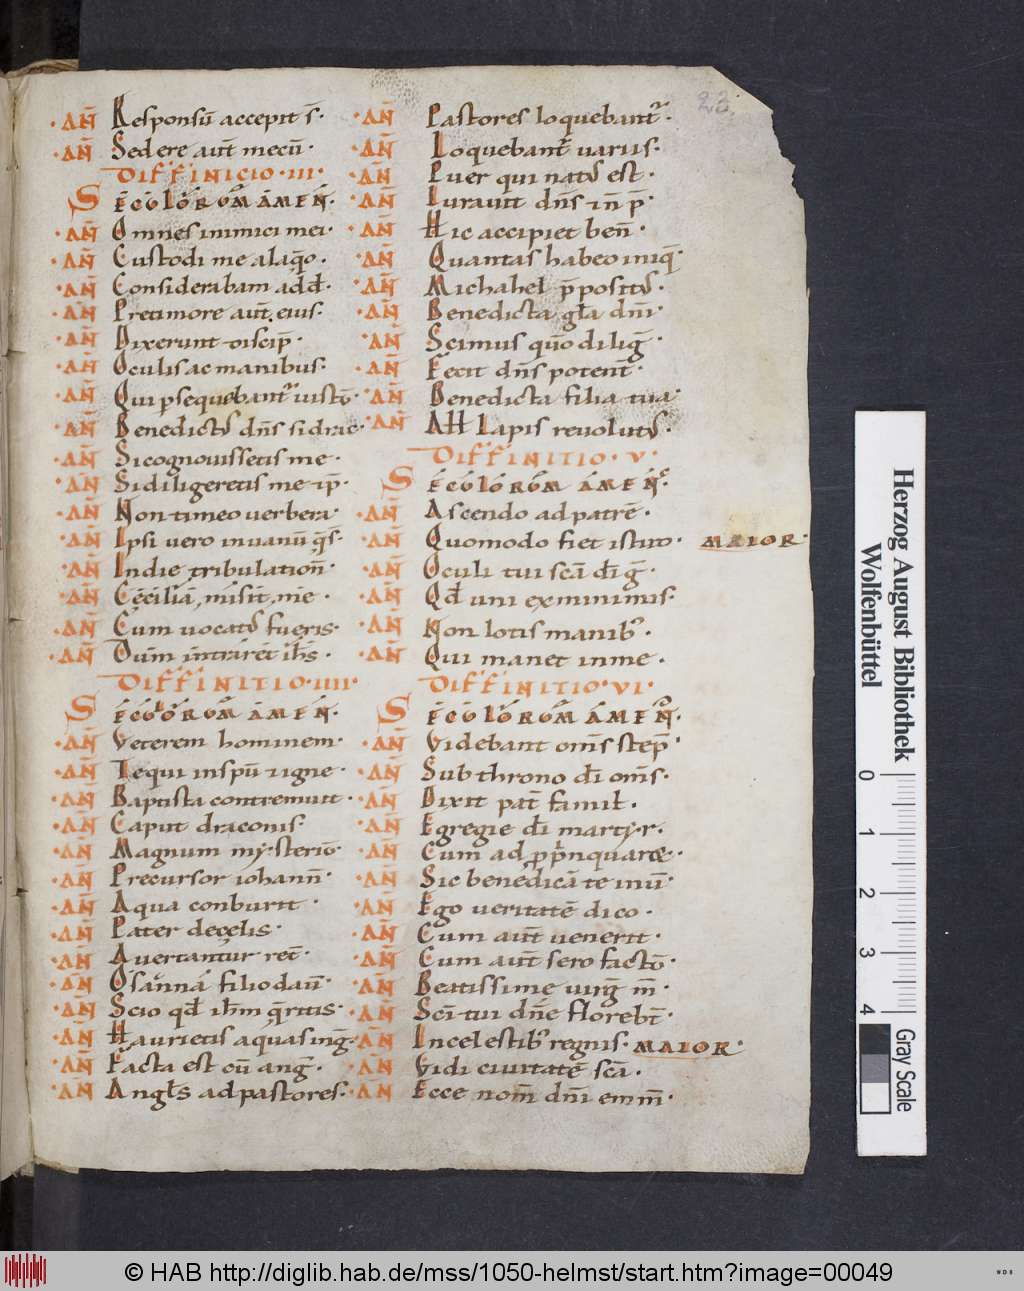 23
·AN̄ Responsū accepit s̄·
·AN̄ Sedere aut̄ mecū·
Diffinicio·III·
SECULORUM AMEN·
·AN̄ Omnes inimici mei·
·AN̄ Custodi me a laq̄o·
·AN̄ Considerabam ad d̄·
·AN̄ Pretimore aut̄ eius·
·AN̄ Dixerunt discip̄·
·AN̄ Oculis ac manibus·
·AN̄ Qui psequebant iustō·
·AN̄ Benedict᾿ dn̄s sidrac·
·AN̄ Si cognouissetis me·
·AN̄ Si diligeretis me ip̄·
·AN̄ Non timeo uerbera·
·AN̄ Ipsi uero in uanū q̄s̄·
·AN̄ In die tribulation̄·
·AN̄ Cecilia, misit, me·
·AN̄ Cum uocat᾿ fueris·
·AN̄ Dum intraret ih̄s·
Diffinitio·IIII·
SECULORUM AMEN·
·AN̄ Veterem hominem·
·AN̄ Te qui in spū ⁊ igne·
·AN̄ Baptista contremuit·
·AN̄ Caput draconis·
·AN̄ Magnum mysteriū·
·AN̄ Precursor iohann̄·
·AN̄ Aqua conburit·
·AN̄ Pater de celis·
·AN̄ Auertantur ret̄·
·AN̄ Osanna filio dauī·
·AN̄ Scio qd̄ ih̄m q̄ritis·
·AN̄ Haurietis aquas in ḡ·
·AN̄ Facta est cū anḡ·
·AN̄ Angls̄ ad pastores·
·AN̄ Pastores loquebant᾿·
·AN̄ Loquebant̄ uariis·
·AN̄ Puer qui nat᾿ est·
·AN̄ Iurauit dn̄s ⁊ n̄ p̄·
·AN̄ Hic accipiet ben̄·
·AN̄ Quantas habeo iniq̄·
·AN̄ Michahel p̄posit᾿·
·AN̄ Benedicta gl̄a dn̄i·
·AN̄ Scimus quō diliḡ·
·AN̄ Fecit dn̄s potent̄·
·AN̄ Benedicta filia tua·
·AN̄ All Lapis reuolut᾿·
Diffinitio·V·
SECULORUM AMEN·
·AN̄ Ascendo ad patrē·
·AN̄ Quomodo fiet istud· MAIOR·
·AN̄ Oculi tui scā di ḡ·
·AN̄ Qd̄ uni ex minimis·
·AN̄ Non lotis manib᾿·
·AN̄ Qui manet in me·
Diffinitio·VI·
SECULORUM AMEN·
·AN̄ Videbant om̄s step̄·
·AN̄ Sub throno dī om̄s·
·AN̄ Dixit pat̄ famil·
·AN̄ Egregie dī martyr·
·AN̄ Cum adppinquaret·
·AN̄ Sic benedicā te in ū·
·AN̄ Ego ueritatē dico·
·AN̄ Cum aut̄ uenerit·
·AN̄ Cum aut̄ sero factō·
·AN̄ Beatissime uirḡ m̄·
·AN̄ Scī tui dn̄e florebt̄·
·AN̄ In celestib᾿ regnis· MAIOR·
·AN̄ Vidi ciuitatē scā·
·AN̄ Ecce nom̄ dn̄i emm̄·
Herzog August Bibliothek
Wolfenbüttel
0 1 2 3 4
Gray Scale
© HAB http://diglib.hab.de/mss/1050-helmst/start.htm?image=00049